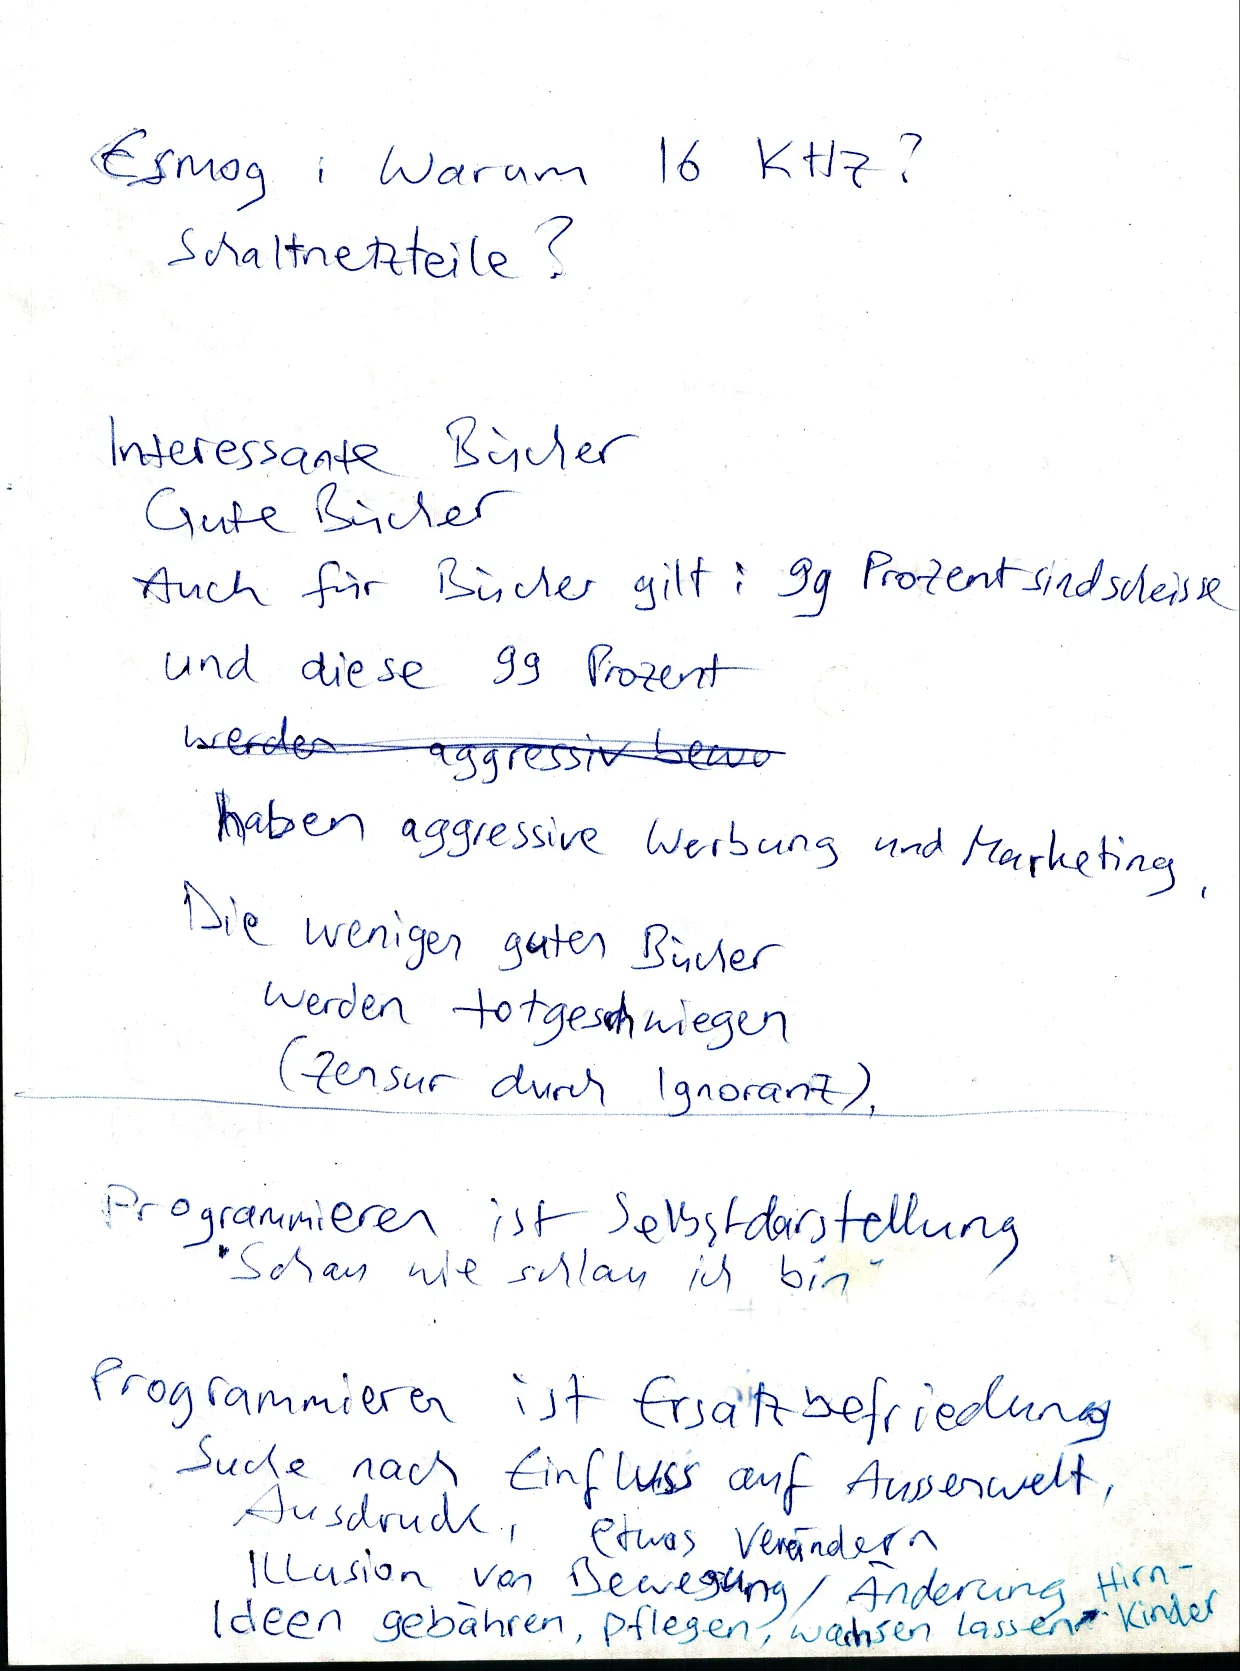 Esmog : Warum 16 KHz?
Schaltnetzteile?
Interessante Bücher
Gute Bücher
Auch für Bücher gilt : 99 Prozent sind scheisse
und diese 99 Prozent
werden aggressiv bewo
haben aggressive Werbung und Marketing.
Die wenigen guten Bücher
werden totgeschwiegen
(Zensur durch Ignoranz).
Programmieren ist Selbstdarstellung
"Schau wie schlau ich bin"
Programmieren ist Ersatzbefriedung
Suche nach Einfluss auf Aussenwelt,
Ausdruck, etwas verändern
Illusion von Bewegung / Änderung
Ideen gebähren, pflegen, wachsen lassen Hirn-
Kinder